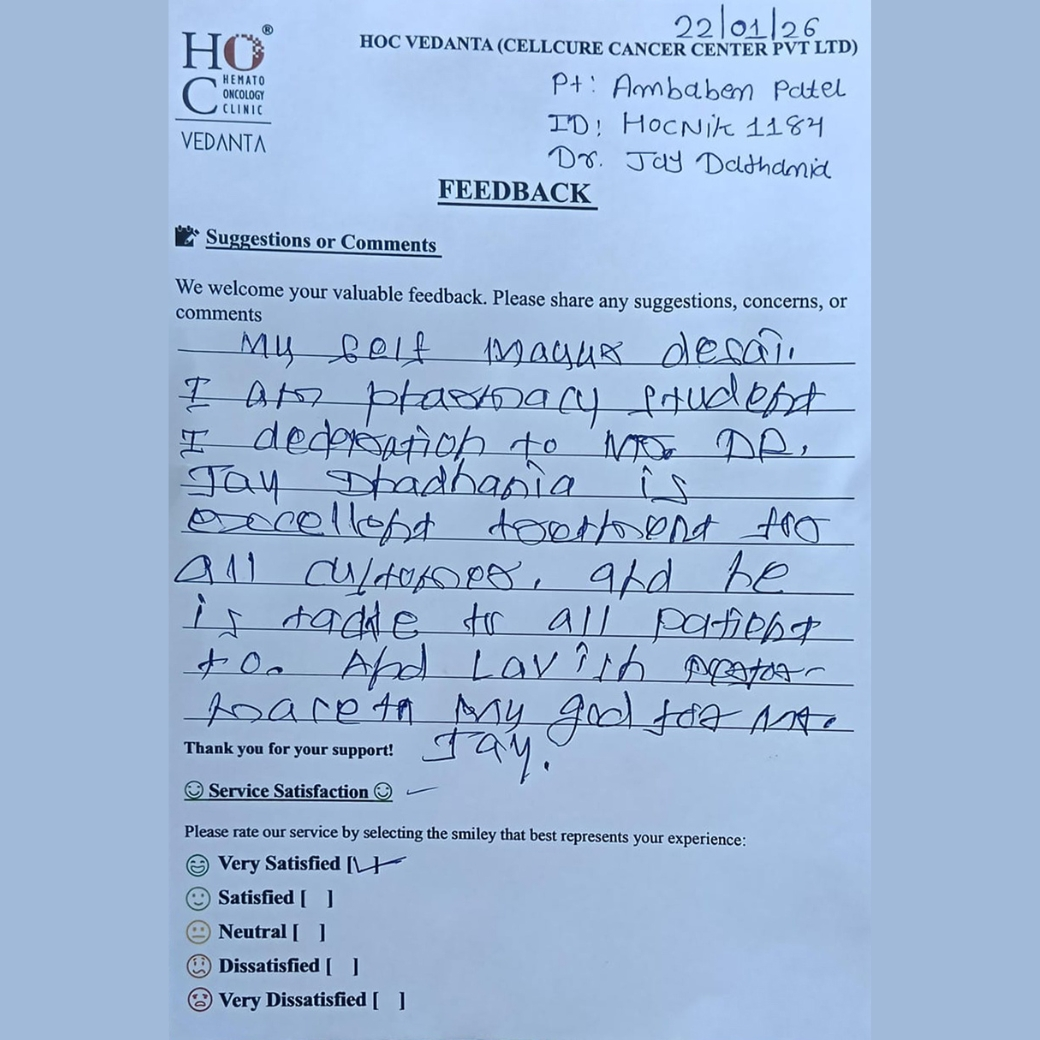 22/01/26
HOC
®
HEMATO
ONCOLOGY
CLINIC
VEDANTA
HOC VEDANTA (CELLCURE CANCER CENTER PVT LTD)
Pt: Ambaben Patel
ID: HOCNik 1184
Dr. Jay Dadhania
FEEDBACK
Suggestions or Comments
We welcome your valuable feedback. Please share any suggestions, concerns, or
comments
My self Mayur desai.
I am pharmacy student
I to DR.
Jay Dhadhania is
excellent treetment for
all and he
is to all patient
to. And
my god for Mr.
Jay.
Thank you for your support!
Service Satisfaction
Please rate our service by selecting the smiley that best represents your experience:
Very Satisfied [✓]
Satisfied [ ]
Neutral [ ]
Dissatisfied [ ]
Very Dissatisfied [ ]